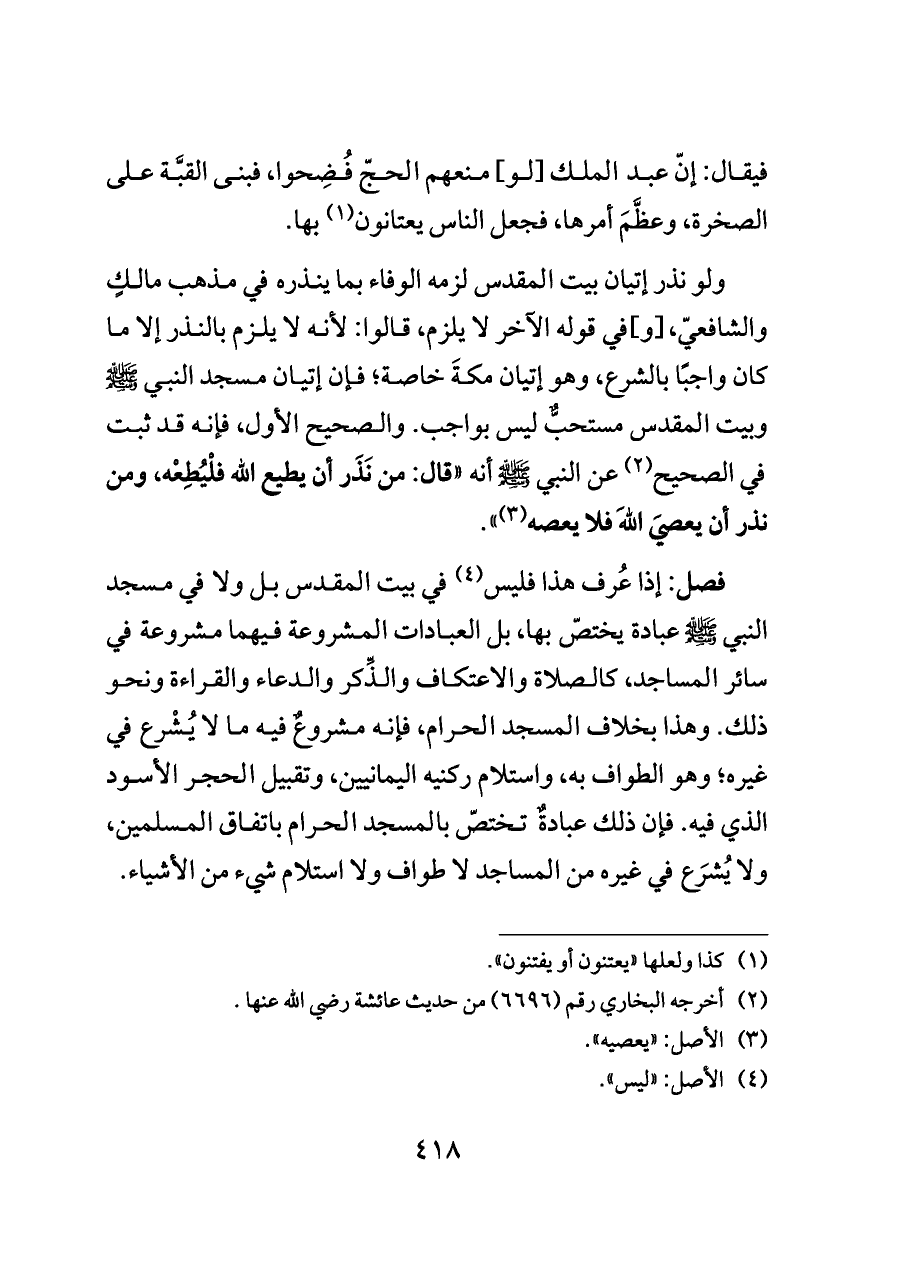 فيقال: إنّ عبد الملك [لو] منعهم الحجّ فُضِحوا، فبنى القبَّة على
الصخرة، وعظَّمَ أمرها، فجعل الناس يعتانون(١) بها.
ولو نذر إتيان بيت المقدس لزمه الوفاء بما ينذره في مذهب مالكٍ
والشافعيّ، [و]في قوله الآخر لا يلزم، قالوا: لأنه لا يلزم بالنذر إلا ما
كان واجبًا بالشرع، وهو إتيان مكةَ خاصة؛ فإن إتيان مسجد النبي ﷺ
وبيت المقدس مستحبٌّ ليس بواجب. والصحيح الأول، فإنه قد ثبت
في الصحيح(٢) عن النبي ﷺ أنه «قال: من نَذَر أن يطيع الله فلْيُطِعْه، ومن
نذر أن يعصيَ اللهَ فلا يعصه(٣)».
فصل: إذا عُرف هذا فليس(٤) في بيت المقدس بل ولا في مسجد
النبي ﷺ عبادة يختصّ بها، بل العبادات المشروعة فيهما مشروعة في
سائر المساجد، كالصلاة والاعتكاف والذِّكر والدعاء والقراءة ونحو
ذلك. وهذا بخلاف المسجد الحرام، فإنه مشروعٌ فيه ما لا يُشْرع في
غيره؛ وهو الطواف به، واستلام ركنيه اليمانيين، وتقبيل الحجر الأسود
الذي فيه. فإن ذلك عبادةٌ تختصّ بالمسجد الحرام باتفاق المسلمين،
ولا يُشرَع في غيره من المساجد لا طواف ولا استلام شيء من الأشياء.
(١) كذا ولعلها «يعتنون أو يفتنون».
(٢) أخرجه البخاري رقم (٦٦٩٦) من حديث عائشة رضي الله عنها .
(٣) الأصل: «يعصيه».
(٤) الأصل: «ليس».
٤١٨